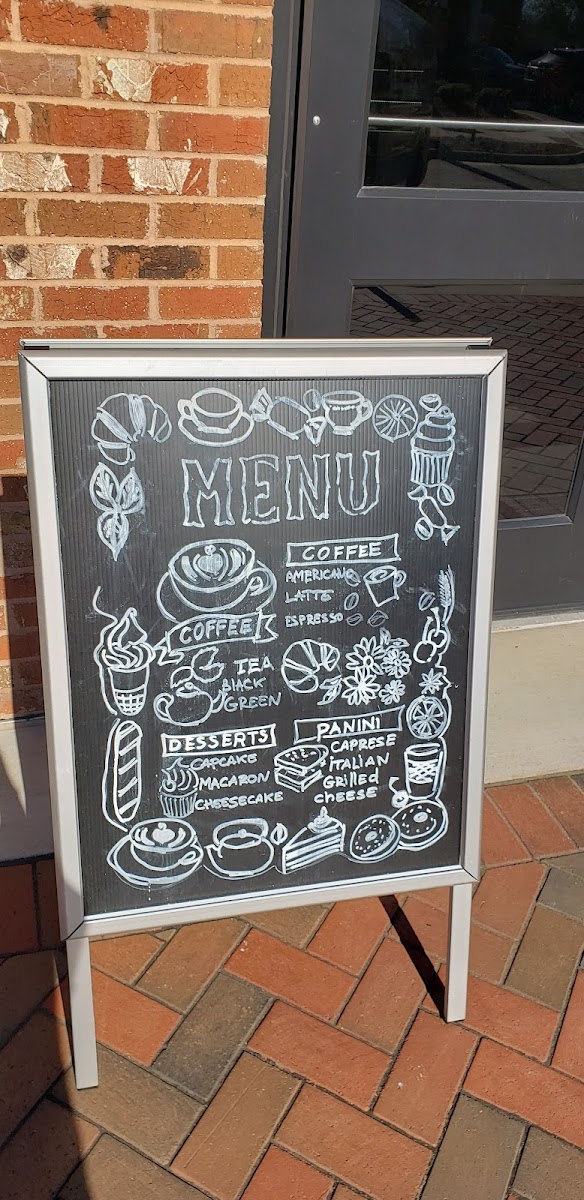 MENU
COFFEE
AMERICANO
LATTE
ESPRESSO
COFFEE
TEA
BLACK
GREEN
DESSERTS
CAPCAKE
MACARON
CHEESECAKE
PANINI
CAPRESE
iTALIAN
GRilled
cheese